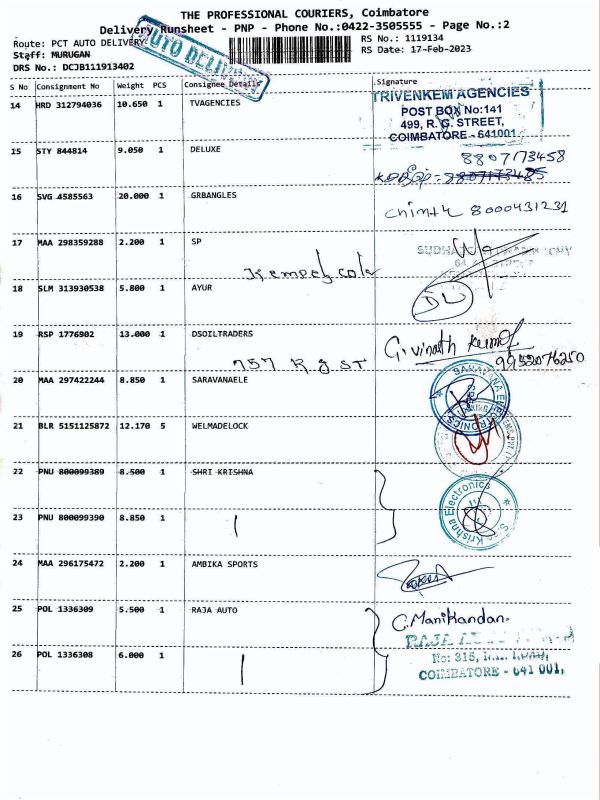 THE PROFESSIONAL COURIERS, Coimbatore
Delivery Runsheet - PNP - Phone No.:0422-3505555 - Page No.:2
Route: PCT AUTO DELIVERY
RS No.: 1119134
Staff: MURUGAN
RS Date: 17-Feb-2023
DRS No.: DCJB111913402
AUTO DELIVERY
S No Consignment No Weight PCS Consignee Details Signature
14 HRD 312794036 10.650 1 TVAGENCIES
TRIVENKEM AGENCIES
POST BOX No:141
499, R. G. STREET,
COIMBATORE - 641001
15 STY 844814 9.050 1 DELUXE
8807173458
8807173485
16 SVG 4585563 20.000 1 GRBANGLES
8000431231
17 MAA 298359288 2.200 1 SP
18 SLM 313930538 5.800 1 AYUR
DL
19 RSP 1776902 13.000 1 DSOILTRADERS
757 R g ST
G. vinoth kumar
9952076250
20 MAA 297422244 8.850 1 SARAVANAELE
SARAVANA ELECTRONICS
21 BLR 5151125872 12.170 5 WELMADELOCK
22 PNU 800099389 8.500 1 SHRI KRISHNA
Sri Krishna Electronics
23 PNU 800099390 8.850 1
24 MAA 296175472 2.200 1 AMBIKA SPORTS
25 POL 1336309 5.500 1 RAJA AUTO
C. Manikandan.
RAJA
No: 316,
COIMBATORE - 641 001.
26 POL 1336308 6.000 1